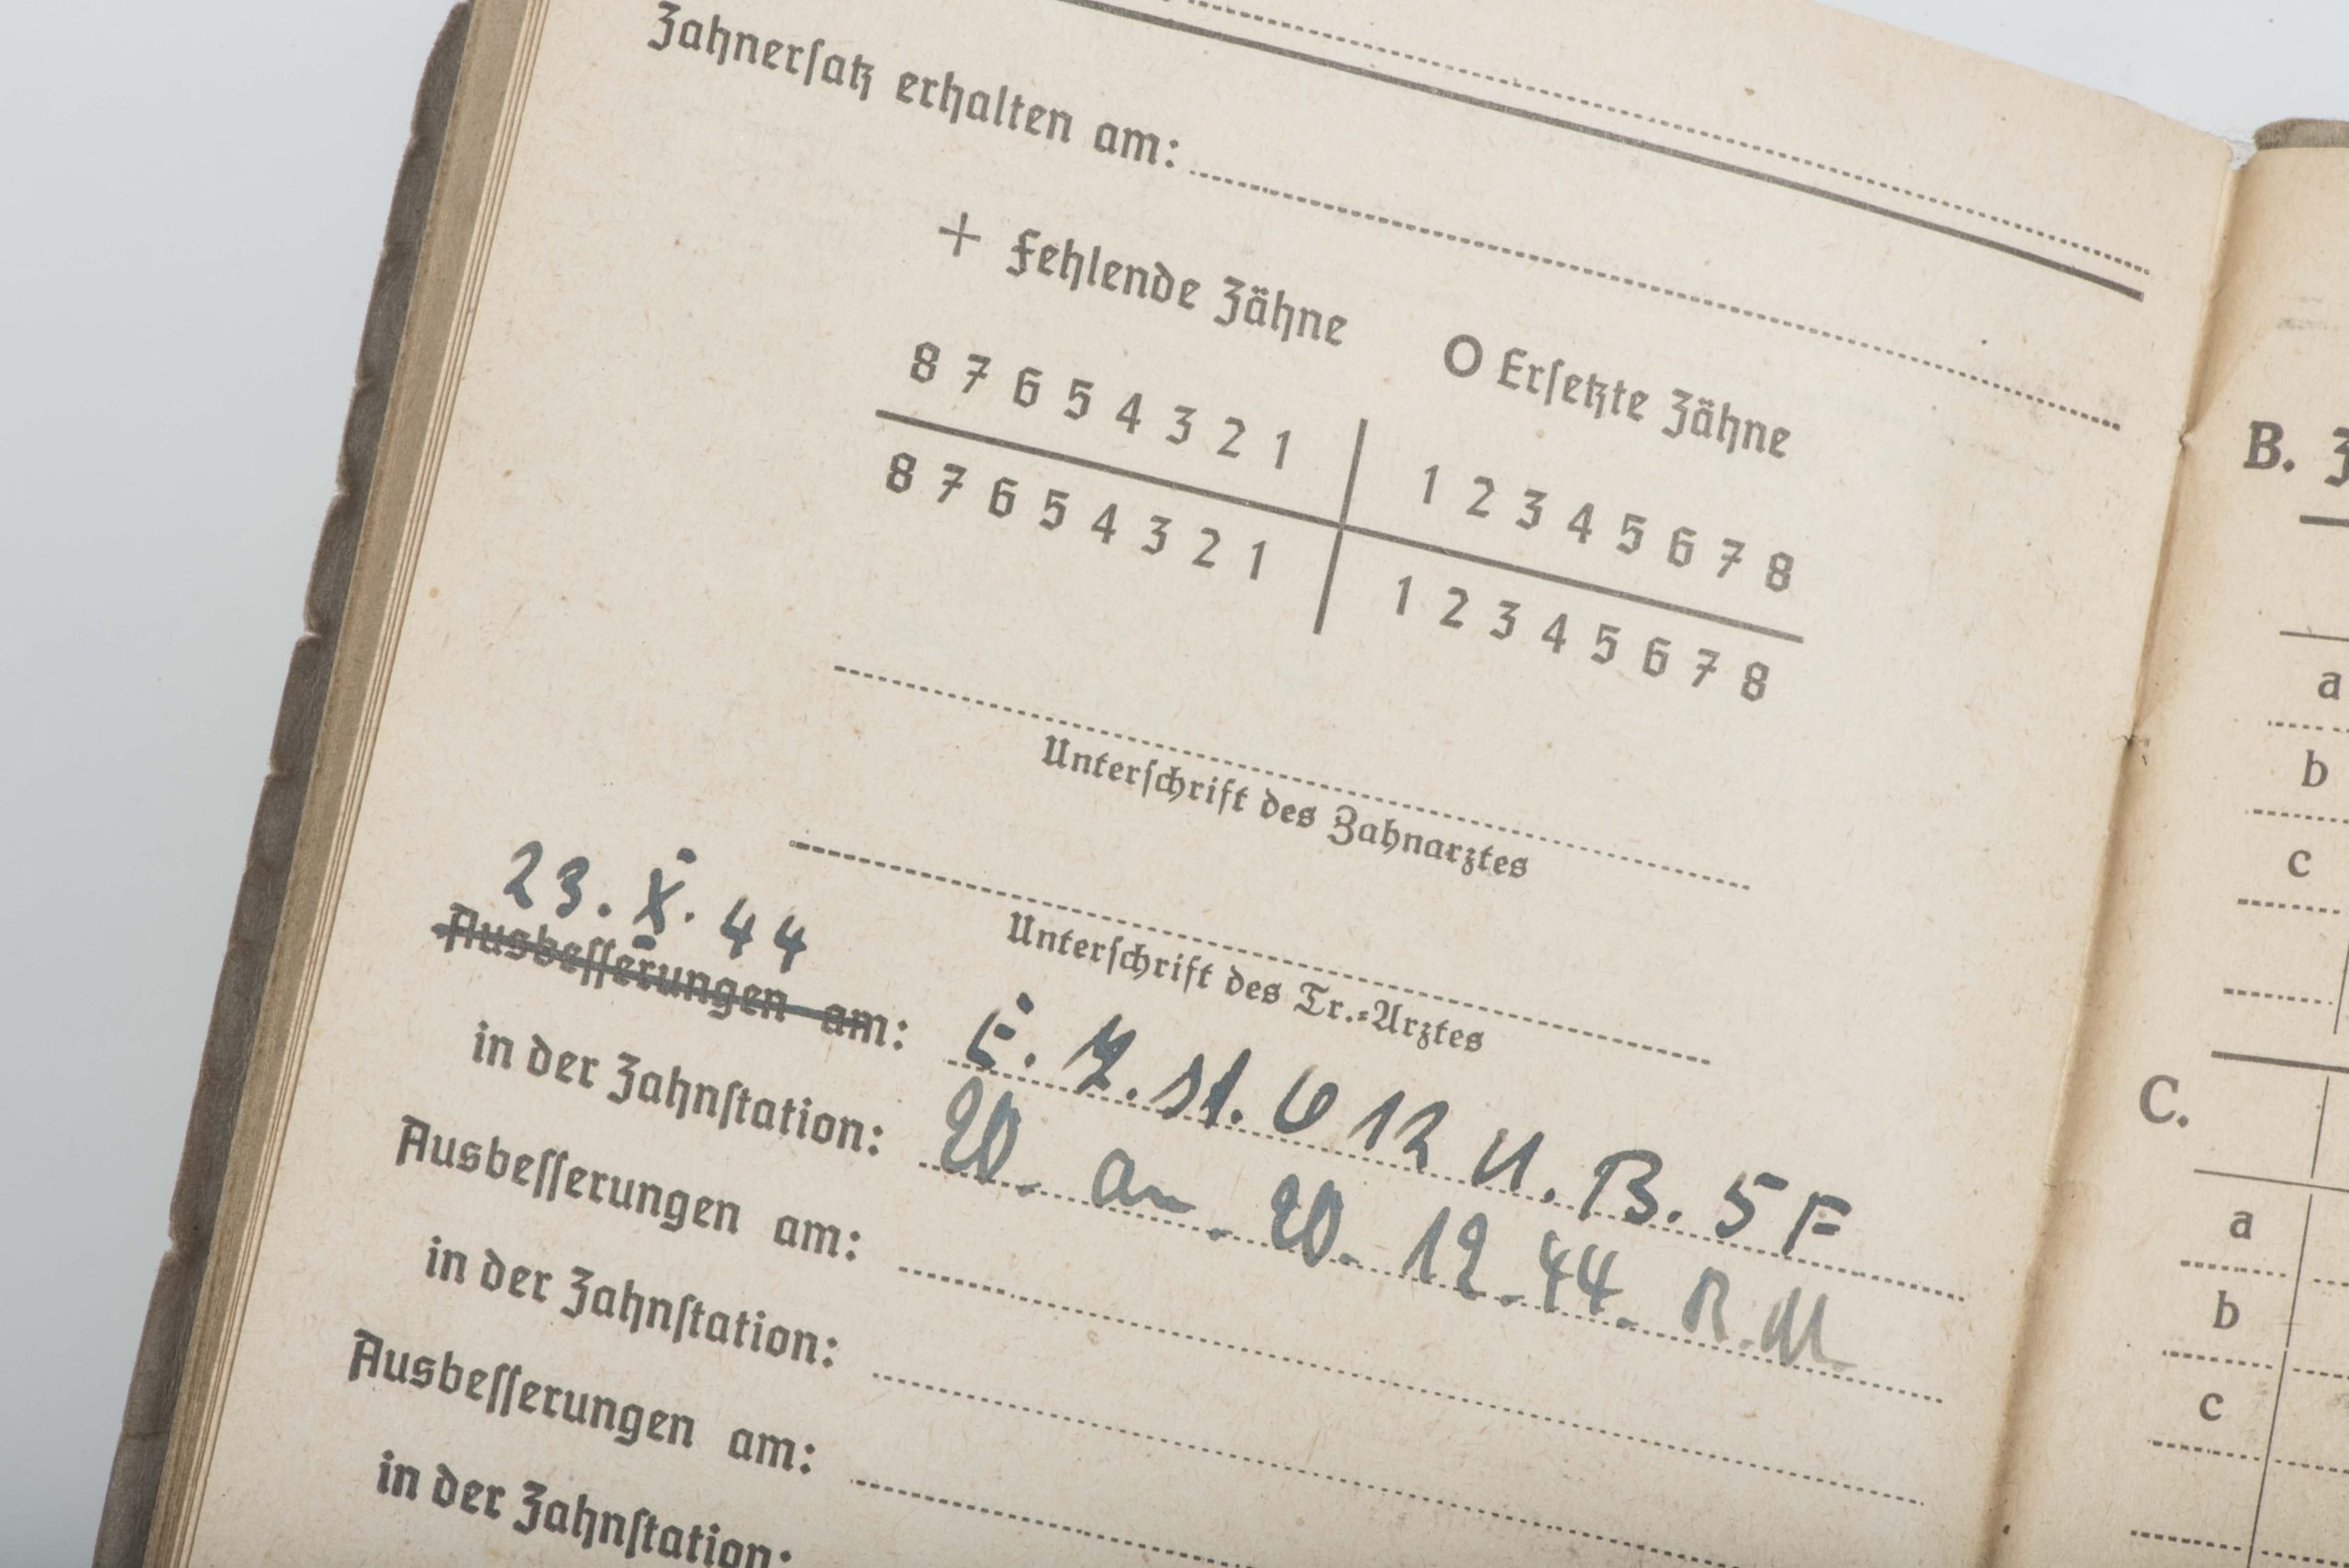 Zahnersatz erhalten am:
+ Fehlende Zähne O Ersetzte Zähne
8 7 6 5 4 3 2 1 1 2 3 4 5 6 7 8
8 7 6 5 4 3 2 1 1 2 3 4 5 6 7 8
Unterschrift des Zahnarztes
Unterschrift des Tr.-Arztes
23. X. 44
Ausbesserungen am: E. Z. St. 612 U. B. 5 F
in der Zahnstation: 20. an. 20. 12. 44. R. M.
Ausbesserungen am:
in der Zahnstation:
Ausbesserungen am:
in der Zahnstation:
B.
a
b
c
C.
a
b
c